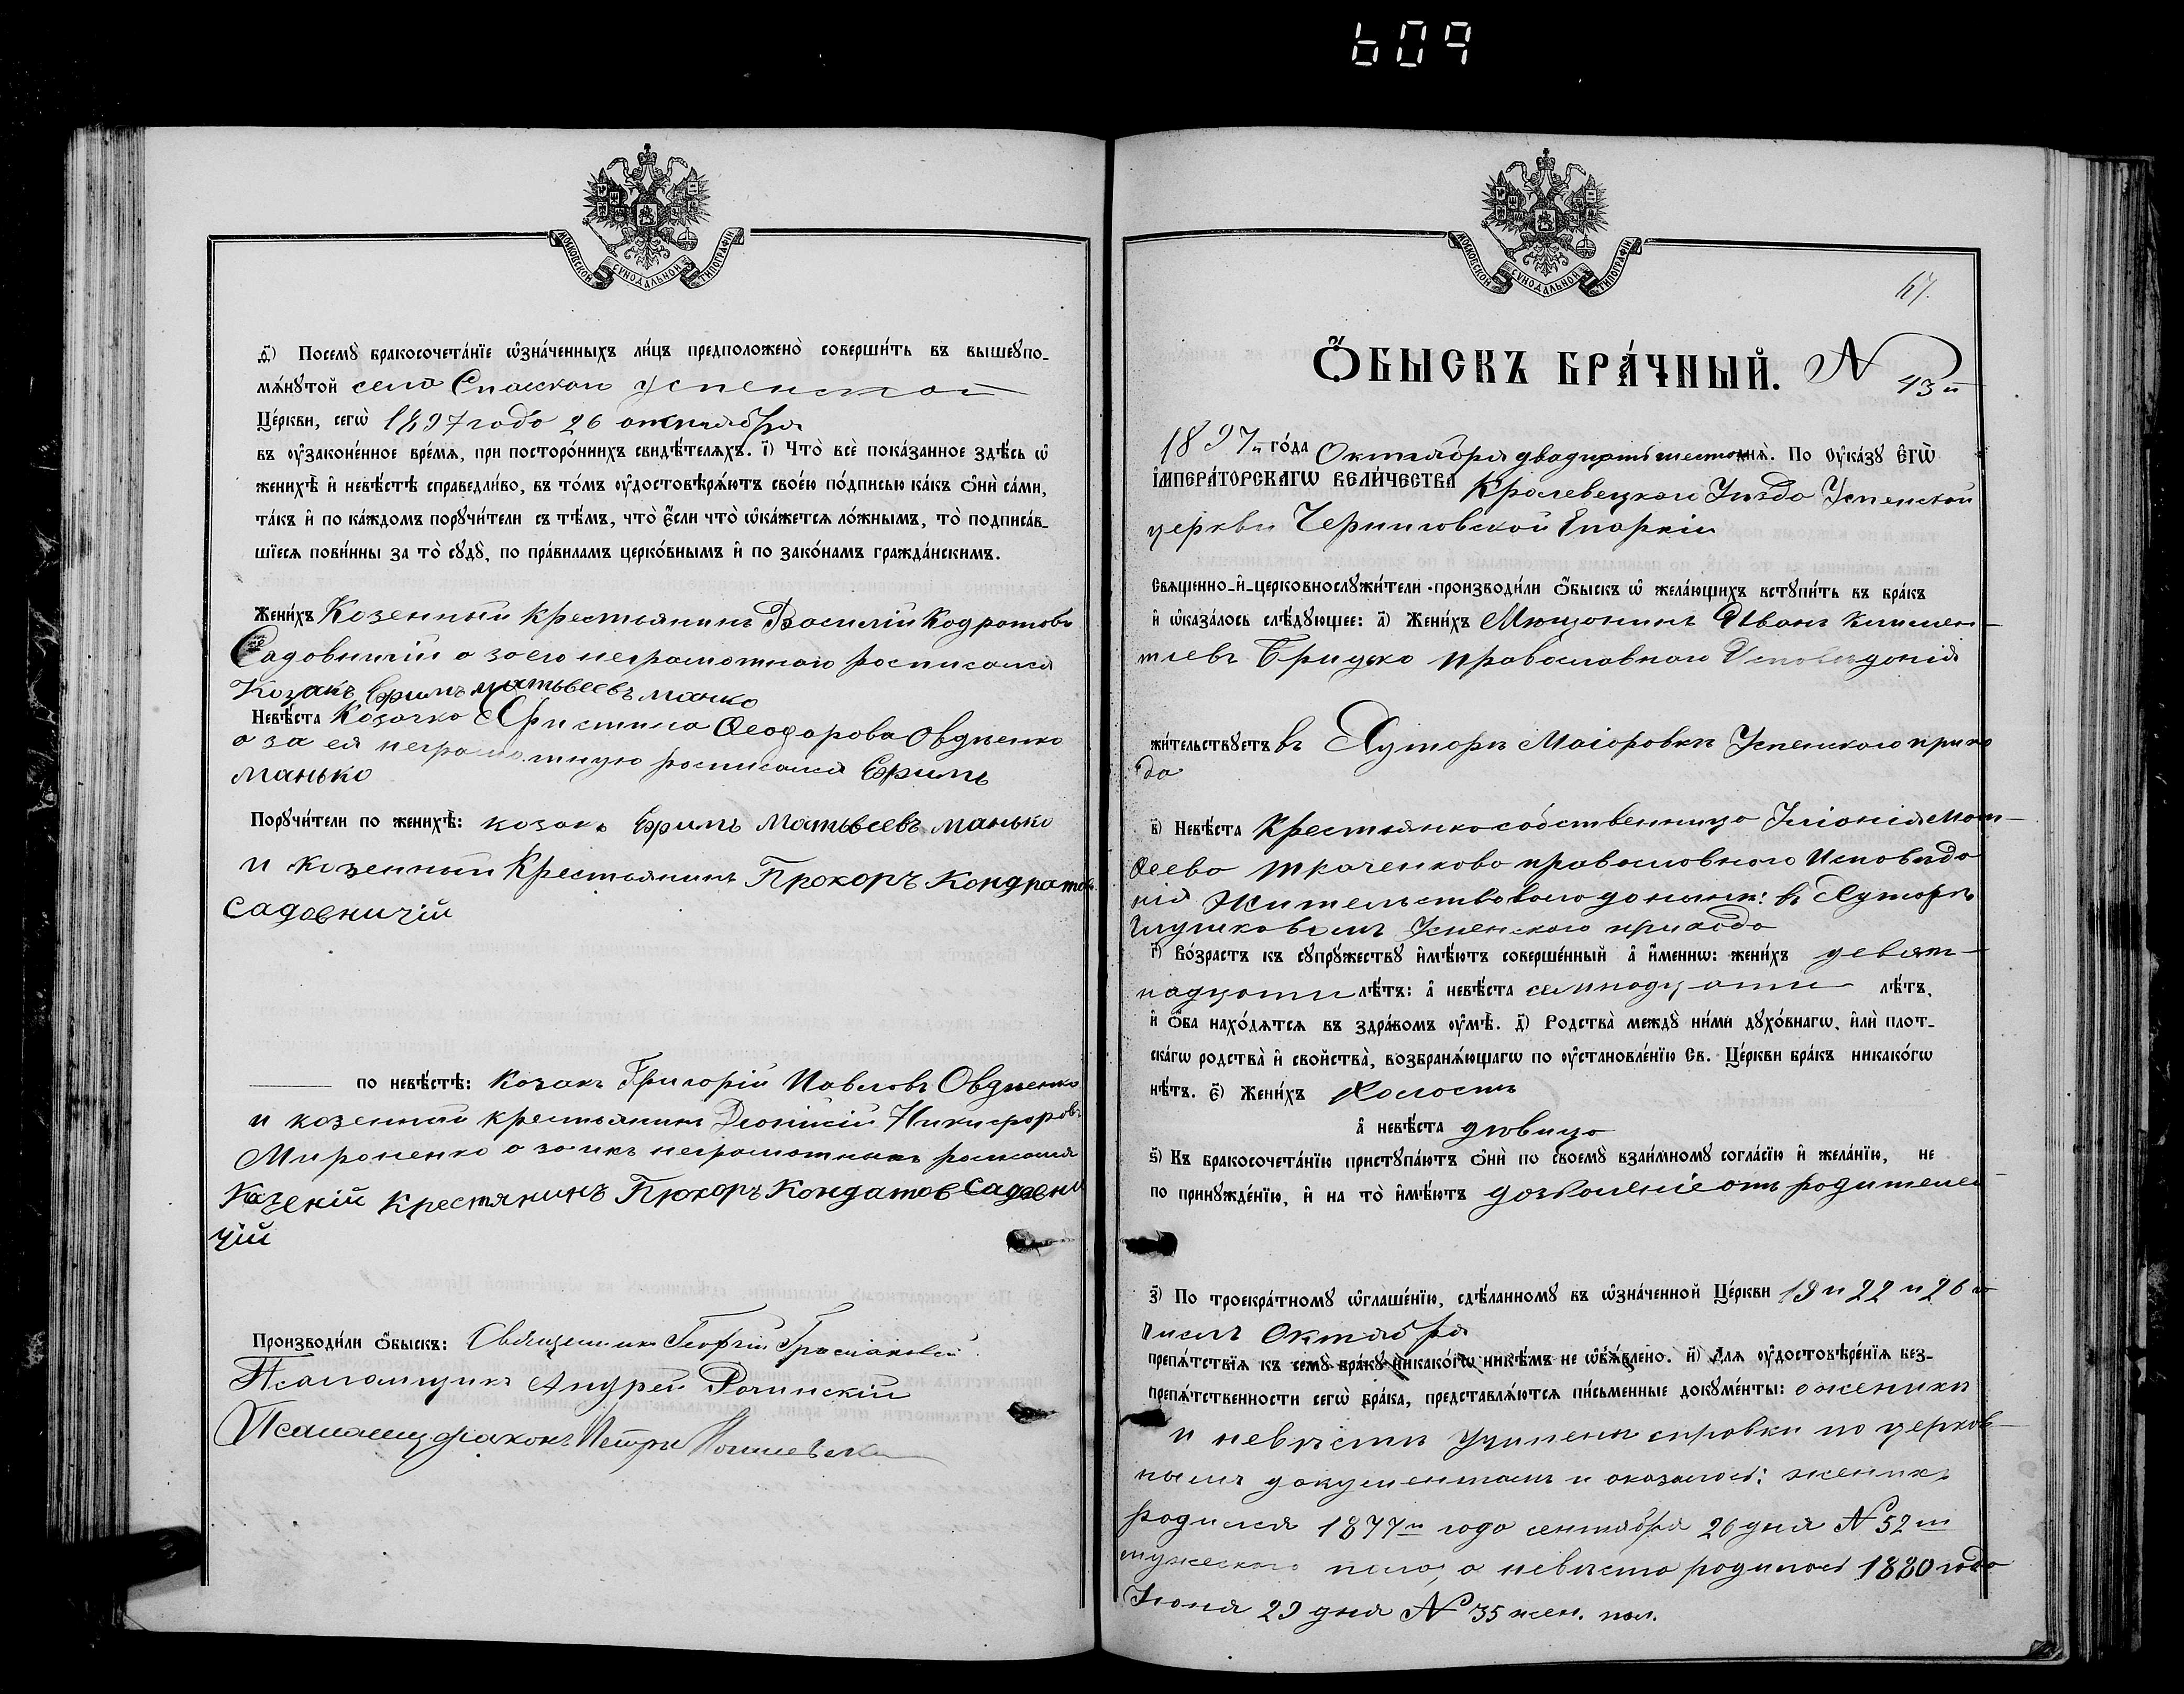 609
МОСКОВСКОЙ СУНОДАЛЬНОЙ ТИПОГРАФІИ
ѳ҃) Посемꙋ̀ бракосочета́нїе ѡ҆зна́ченныхъ ли́цъ предположено̀ соверши́ть въ вышеꙋпо-
мѧ́нꙋтой села Спаскаго Успенской
Це́ркви, сегѡ̀ 1897 года 26 октября
въ ᲂу҆зако́не́нное вре́мѧ, при посторо́ннихъ свидѣ́телѧхъ. і҃) Что̀ всѐ пока́занное здѣ́сь ѡ҆
женихѣ̀ и҆ невѣ́стѣ справедли́во, въ то́мъ ᲂу҆достовѣрѧ́ютъ свое́ю по́дписью ка́къ ѻ҆нѝ са́ми,
та́къ и҆ по ка́ждомъ порꙋчи́тели съ тѣ́мъ, что̀ є҆́сли что̀ ѡ҆ка́жетсѧ ло́жнымъ, то̀ подписа́в-
шїесѧ пови́нны за то̀ сꙋдꙋ̀, по пра́виламъ церко́внымъ и҆ по зако́намъ гражда́нскимъ.
Жени́хъ Казенный крестьянинъ Василій Кодратовъ
Садовничій а за его неграмотнаго росписался
Козакъ Ефимъ Матьвеевъ Манко
Невѣ́ста Козачка Христина Ѳеодорова Овдѣенко
а за ея неграмотную росписался Ефимъ
Манько
Порꙋчи́тели по женихѣ̀: козакъ Ефимъ Матьвеевъ Манько
и казенный Крестьянинъ Прохоръ Кондратов
Садовничій
по невѣ́стѣ: Козакъ Григорій Павловъ Овдѣенко
и казенный крестьянинъ Діонисій Никифоровъ
Мироненко а за ихъ неграмотныхъ росписался
Казеній Крестянинъ Прохоръ Кондатов Садовни
чій
Производи́ли ѻ҆́быскъ: Священникъ Георгій
Псаломщикъ Андрей Рочинскій
Псаломщ. діаконъ Петръ
МОСКОВСКОЙ СУНОДАЛЬНОЙ ТИПОГРАФІИ
67.
Ѻ҆́БЫСКЪ БРА́ЧНЫЙ. N 43й
1897й го́да Октября двадцать шестого днѧ̀. По ᲂу҆ка́зꙋ Є҆гѡ̀
І҆мпера́торскагѡ Вели́чества Кролевецкаго Уѣзда Успенской
церкви Черниговской Епархіи
Свѧще́нно-и҆-церковнослꙋжи́тели производи́ли ѻ҆́быскъ ѡ҆ жела́ющихъ встꙋпи́ть въ бра́къ
и҆ ѡ҆каза́лось слѣ́дꙋющее: а҃) Жени́хъ Мѣщанинъ Иванъ Климен-
тіевъ Грицко православнаго Исповѣданія
жи́тельствꙋетъ въ Хуторѣ Маіоровкѣ Успенского прихо
да
в҃) Невѣ́ста Крестьянка собственница Уліанія Мат-
ѳеева Ткаченкова православного Исповѣда
нія Жительствовала до нынѣ: въ Хуторѣ
Глушковомъ Успенского прихода
г҃) Во́зрастъ къ сꙋпрꙋ́жествꙋ и҆мѣ́ютъ соверше́нный а҆ и҆́меннѡ: жени́хъ девят-
надцати лѣ́тъ: а҆ невѣ́ста семнадцати лѣ́тъ,
и҆ ѻ҆́ба нахо́дѧтсѧ въ здра́вомъ ᲂу҆мѣ̀. д҃) Родства̀ междꙋ̀ ни́ми дꙋхо́внагѡ, и҆лѝ плот-
ска́гѡ родства̀ и҆ сво́йства, возбранѧ́ющагѡ по ᲂу҆становле́нїю Св. Це́ркви бра́къ никако́гѡ
нѣ́тъ. є҃) Жени́хъ холостъ
а҆ невѣ́ста дѣвица
ѕ҃) Къ бракосочета́нїю пристꙋпа́ютъ ѻ҆нѝ по своемꙋ̀ взаи́мномꙋ согла́сїю и҆ жела́нїю, не
по принꙋжде́нїю, и҆ на то̀ и҆мѣ́ютъ дозволеніе отъ родителей
з҃) По троекра́тномꙋ ѡ҆глаше́нїю, сдѣ́ланномꙋ въ ѡ҆зна́ченной Це́ркви 19 и 22 и 26 го
чиселъ Октября
препѧ́тствїѧ къ семꙋ̀ бра́кꙋ никако́гѡ никѣ́мъ не ѡ҆б̾ѧ́влено. и҃) Длѧ ᲂу҆достовѣре́нїѧ без-
препѧ́тственности сегѡ̀ бра́ка, представлѧ́ютсѧ пи́сьменные докꙋме́нты: о женихѣ
и невѣстѣ учинены справки по церков-
нымъ документамъ и оказалось: женихъ
родился 1877го года сентября 26 дня N 52й
мужескаго пола, а невѣста родилась 1880 года
Іюня 29 дня N 35 жен. пол.